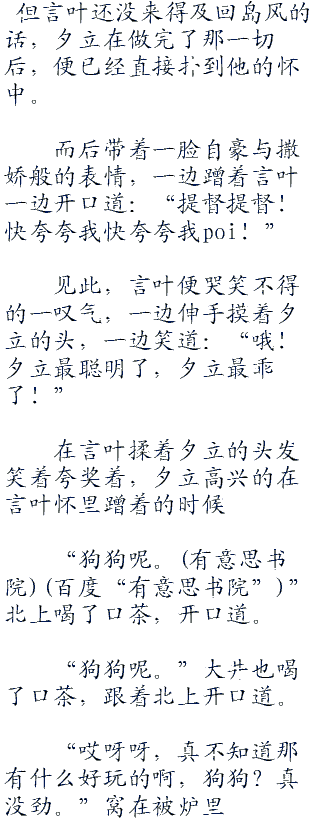 但言叶还没来得及回岛风的
话，夕立在做完了那一切
后，便已经直接扑到他的怀
中。
而后带着一脸自豪与撒
娇般的表情，一边蹭着言叶
一边开口道：“提督提督！
快夸夸我快夸夸我poi！”
见此，言叶便哭笑不得
的一叹气，一边伸手摸着夕
立的头，一边笑道：“哦！
夕立最聪明了，夕立最乖
了！”
在言叶揉着夕立的头发
笑着夸奖着，夕立高兴的在
言叶怀里蹭着的时候
“狗狗呢。(有意思书
院)(百度“有意思书院”)”
北上喝了口茶，开口道。
“狗狗呢。”大井也喝
了口茶，跟着北上开口道。
“哎呀呀，真不知道那
有什么好玩的啊，狗狗？真
没劲。”窝在被炉里